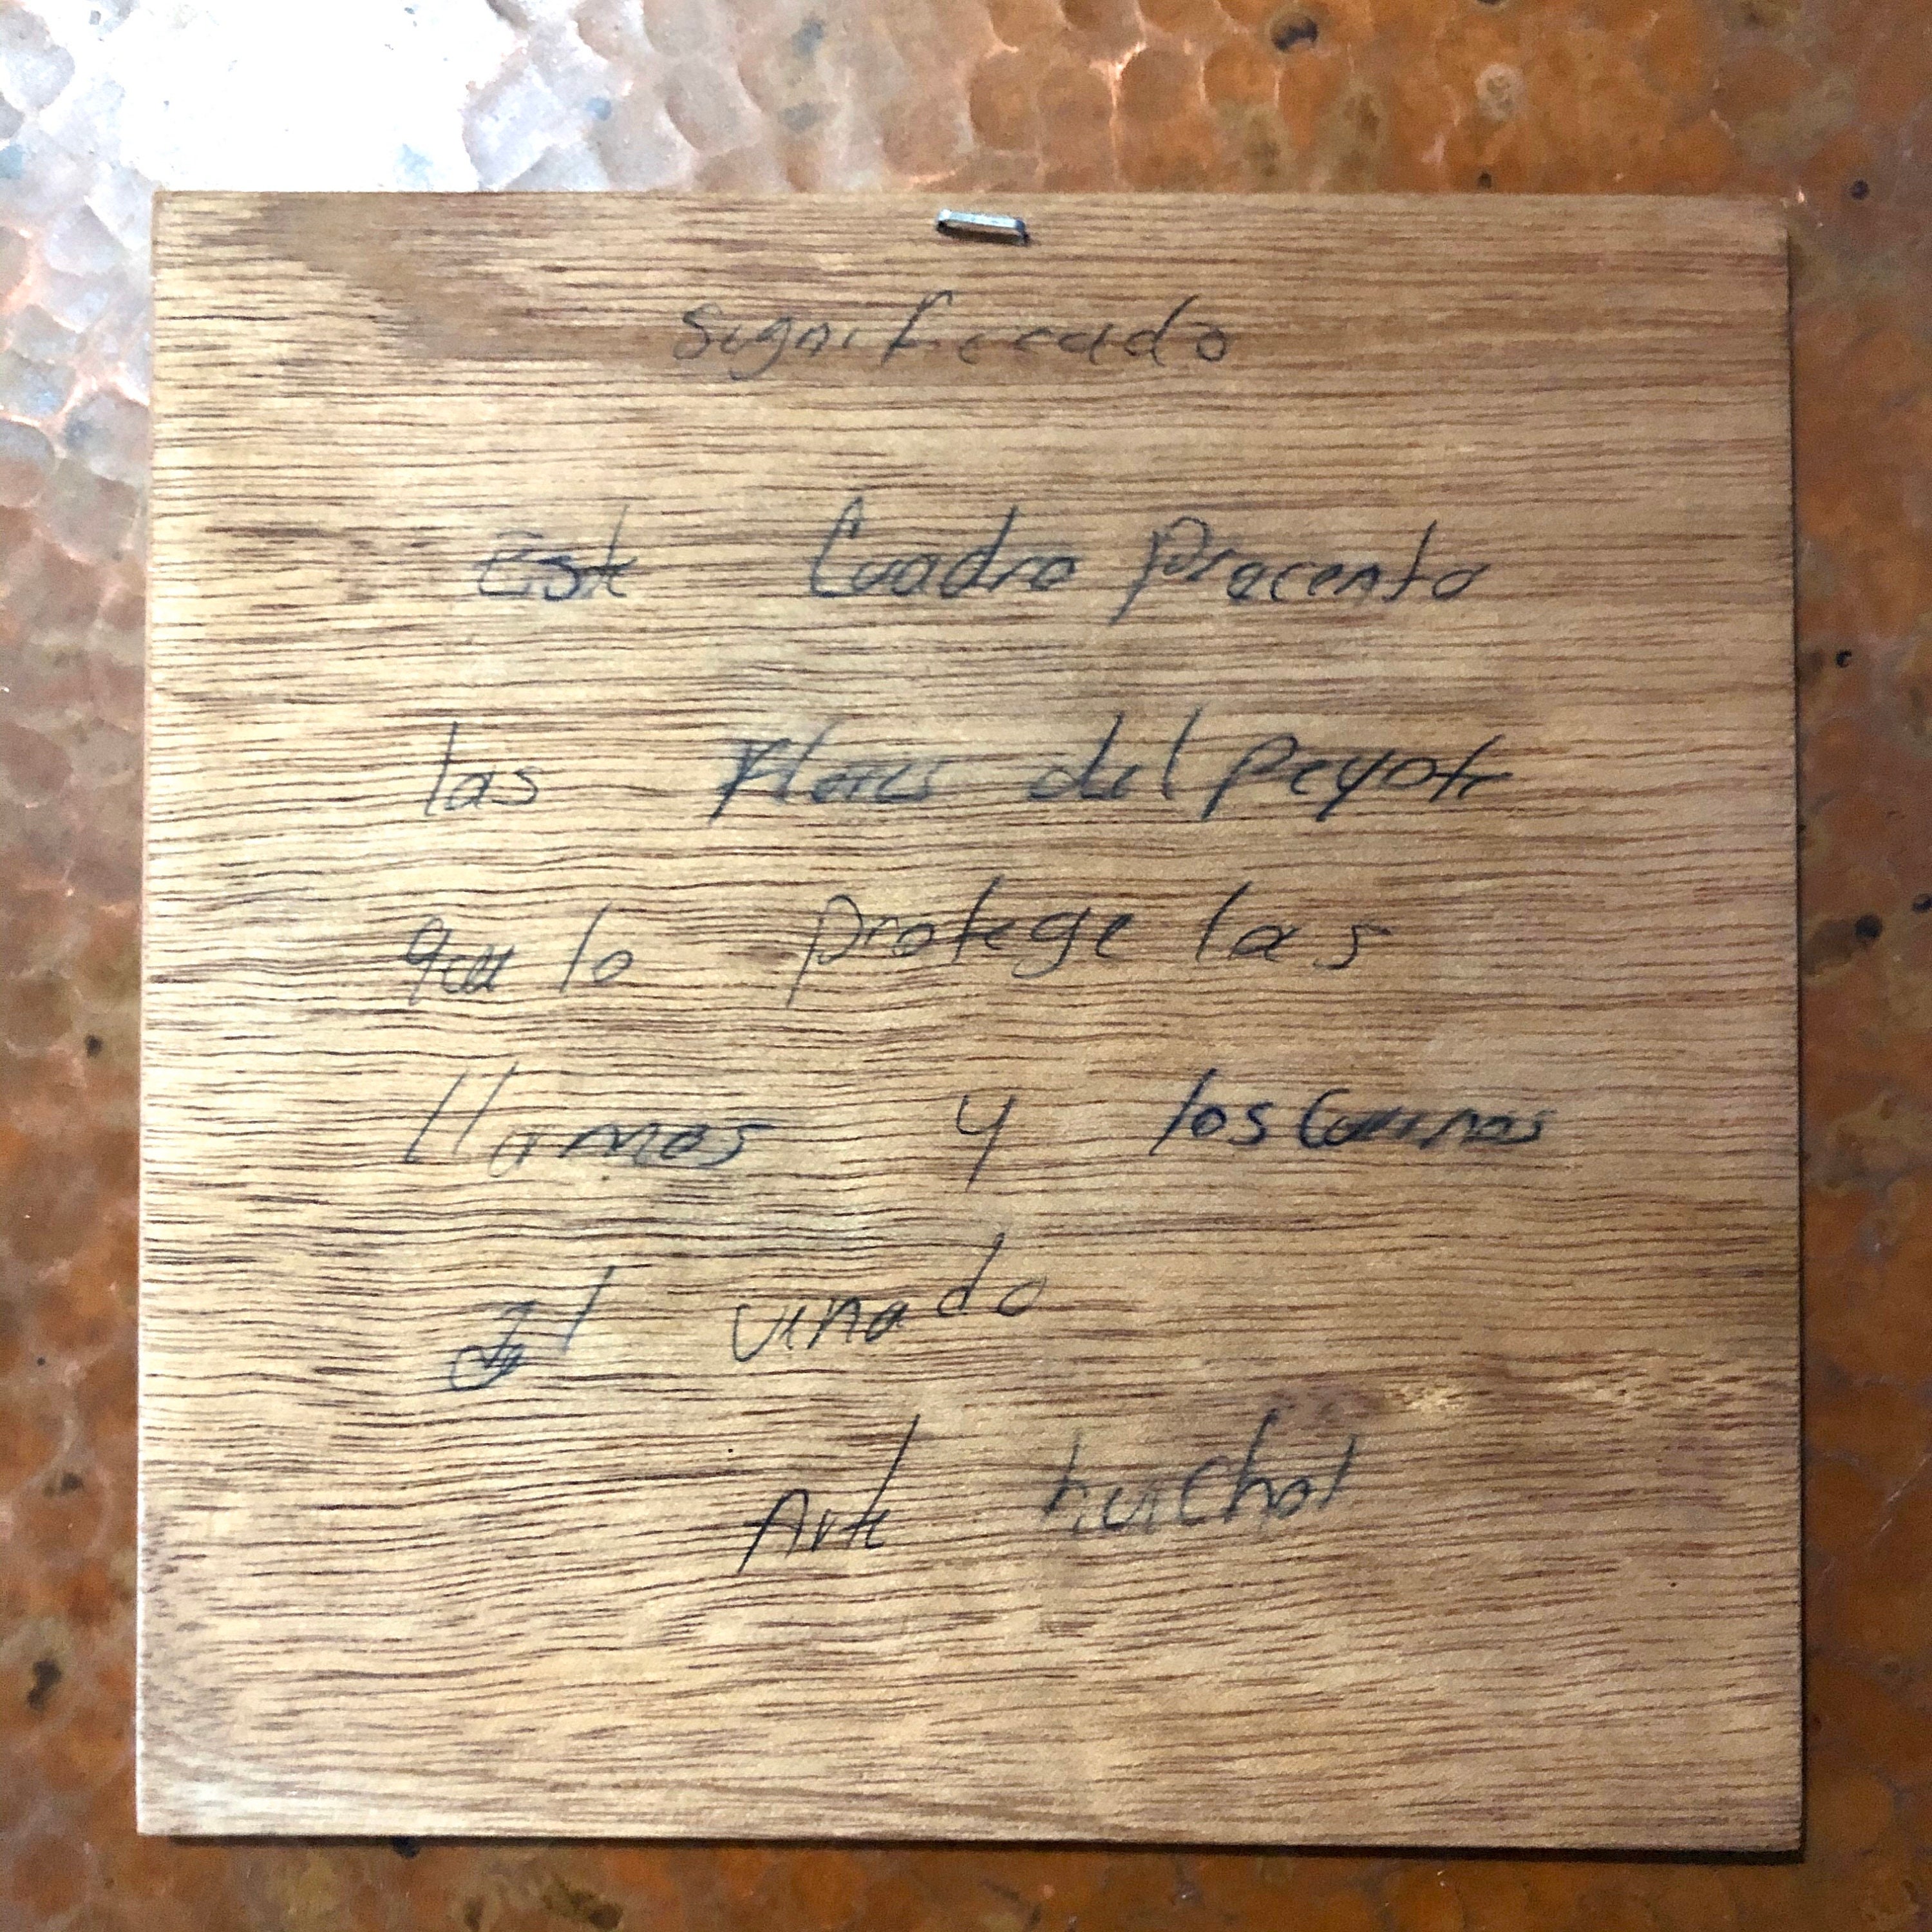 Significado
Este Cuadro precenta
las Flores del peyote
que lo protege las
llamas y los
El venado
Arte huichol